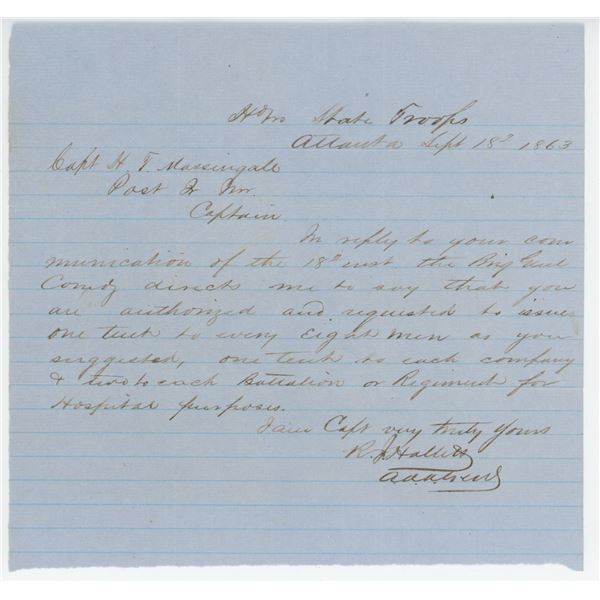 Hd Qrs State Troops
Atlanta Sept 18th 1863
Capt H. T. Massingale
Post Q Mr.
Captain
In reply to your com
munication of the 18th inst the Brig Genl
Comdg directs me to say that you
are authorized and requested to issue
one tent to every Eight men as you
suggested, one tent to each company
& two to each Battalion or Regiment for
Hospital purposes.
I am Capt very truly Yours
R. J. Hallett
A.A.A. Genl